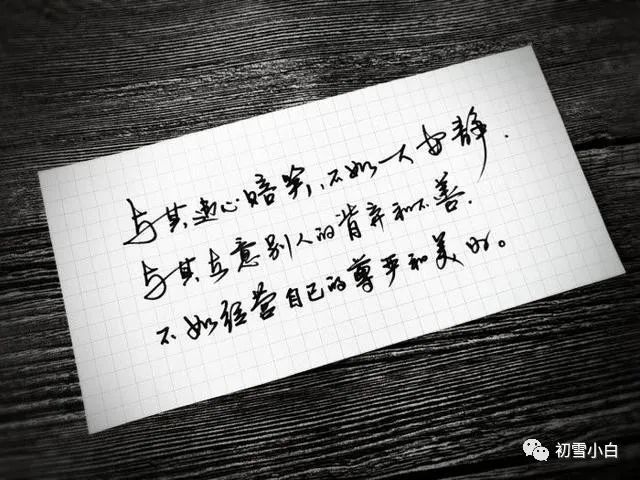 与其违心赔笑,不如一人安静.
与其在意别人的背弃和不善.
不如经营自己的尊严和美好。
初雪小白